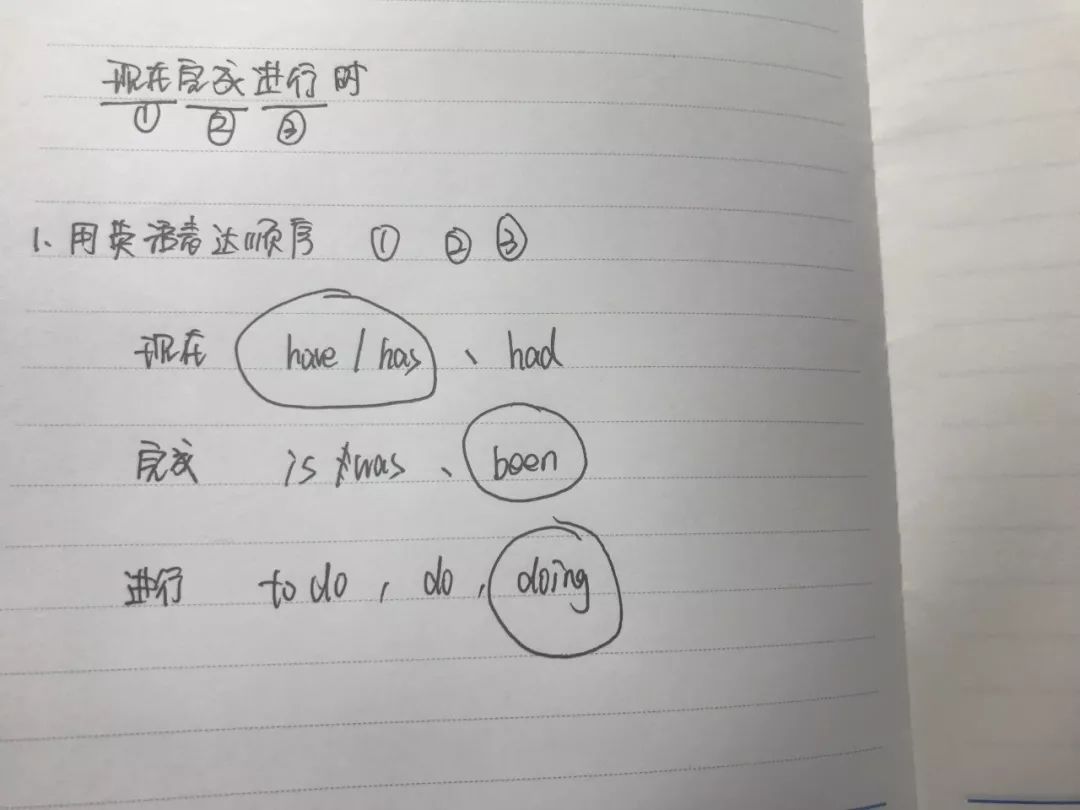 现在完成进行时
① ② ③
1、用英语表达顺序 ① ② ③
现在 have / has 、 had
完成 is was 、 been
进行 to do , do , doing